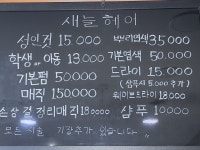 새늘헤어
성인컷 15.000 뿌리염색35.000
학생, 아동 13.000 기본염색 50.000
기본펌 50000 드라이 15.000
(샴푸시 5.000 추가)
매직 150000 웨이브드라이 18.000
손상 결 정리매직 180000 샴푸 10000
모든 시술 기장추가 있습니다